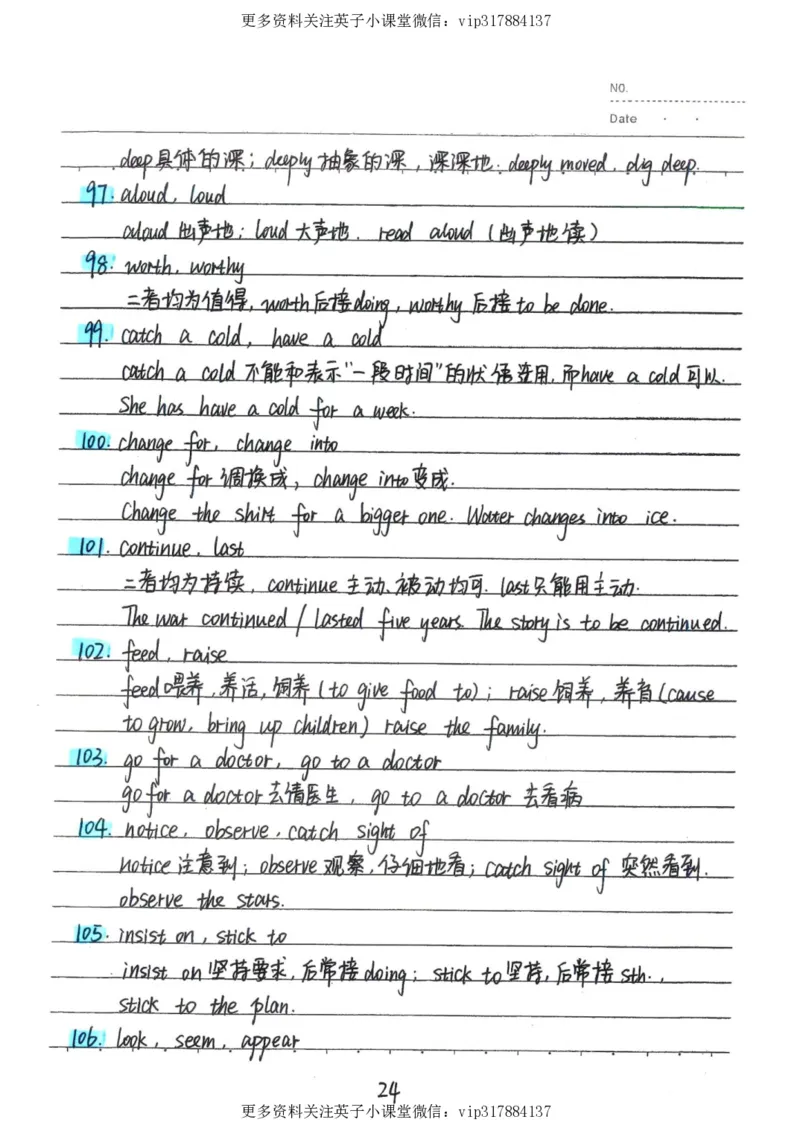 更多资料关注英子小课堂微信：vip317884137
NO.
Date
deep具体的深；deeply抽象的深，深深地. deeply moved. dig deep.
97. aloud, loud
aloud出声地；loud大声地. read aloud（出声地读）
98. worth, worthy
二者均为值得, worth后接doing, worthy后接to be done.
99. catch a cold, have a cold
catch a cold不能和表示"一段时间"的状语连用,而have a cold可以.
She has have a cold for a week.
100. change for, change into
change for调换成, change into变成.
Change the shirt for a bigger one. Water changes into ice.
101. continue, last
二者均为持续, continue主动、被动均可. last只能用主动.
The war continued / lasted five years. The story is to be continued.
102. feed, raise
feed喂养,养活,饲养(to give food to)；raise饲养,养育(cause
to grow, bring up children) raise the family.
103. go for a doctor, go to a doctor
go for a doctor去请医生, go to a doctor去看病
104. notice, observe, catch sight of
notice注意到；observe观察,仔细地看；catch sight of突然看到.
observe the stars.
105. insist on, stick to
insist on坚持要求,后常接doing；stick to坚持,后常接sth.,
stick to the plan.
106. look, seem, appear
24
更多资料关注英子小课堂微信：vip317884137